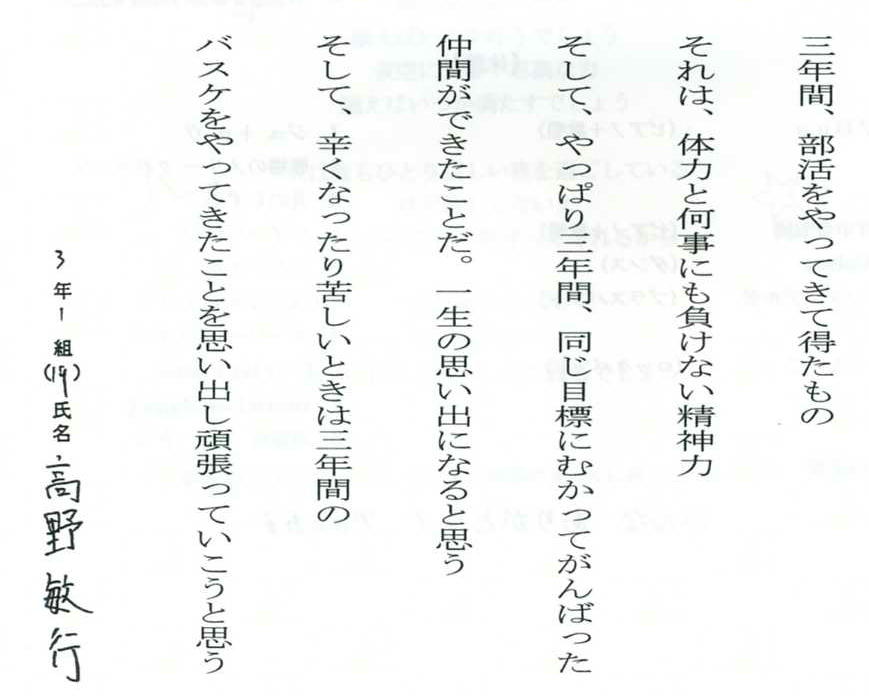 三年間、部活をやってきて得たもの
それは、体力と何事にも負けない精神力
そして、やっぱり三年間、同じ目標にむかってがんばった
仲間ができたことだ。一生の思い出になると思う
そして、辛くなったり苦しいときは三年間の
バスケをやってきたことを思い出し頑張っていこうと思う
3年1組(19)氏名 高野敏行